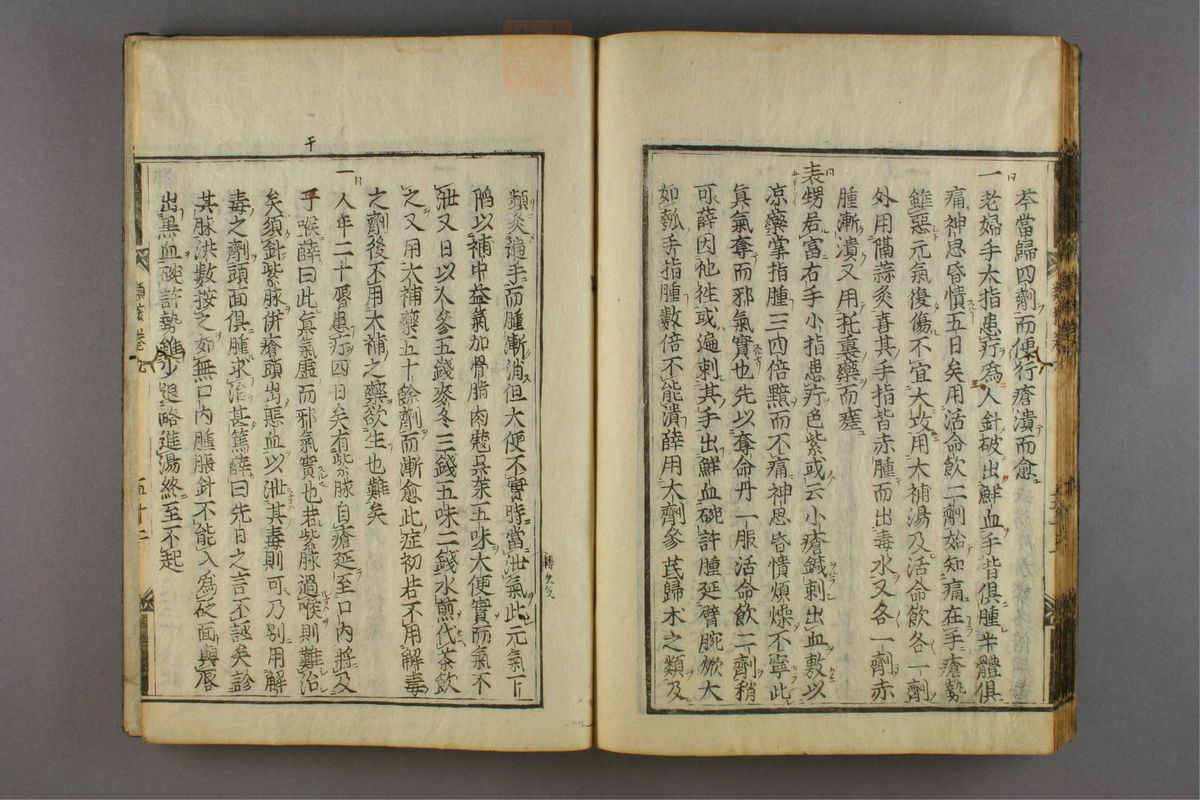 芩當歸四劑而便行瘡潰而愈
一老婦手大指患疔為人針破出鮮血手背俱腫半體俱
痛神思昏憒五日矣用活命飲二劑始知痛在手瘡勢
雖惡元氣復傷不宜大攻用大補湯及活命飲各一劑
外用隔蒜灸喜其手指皆赤腫而出毒水又各一劑赤
腫漸潰又用托裏藥而痊
表甥居富右手小指患疔色紫或云小瘡鍼刺出血敷以
凉藥掌指腫三四倍黯而不痛神思昏憒煩燥不寧此
真氣奪而邪氣實也先以奪命丹一服活命飲二劑稍
可薛因他徃或遍刺其手出鮮血碗許腫延臂腕㴾大
如瓠手指腫數倍不能潰薛用大劑參芪歸朮之類及
頻灸遍手而腫漸消但大便不實時當泄氣此元氣下
䧟以補中益氣加骨脂肉蔲吳茱五味大便實而氣不
泄又日以人參五錢麥冬三錢五味二錢水煎代茶飲
之又用大補藥五十餘劑而漸愈此症初若不用解毒
之劑後不用大補之藥欲生也難矣
一人年二十唇患疔四日矣有紫脉自瘡延至口內將及
乎喉薛曰此真氣虛而邪氣實也若紫脉過喉則難治
矣須針紫脉併瘡頭出惡血以泄其毒則可乃別用解
毒之劑頭面俱腫求治甚篤薛曰先日之言不誣矣診
其脉洪數按之如無口內腫脹針不能入為砭面與唇
出黑血碗許勢雖少退略進湯終至不起
五十二